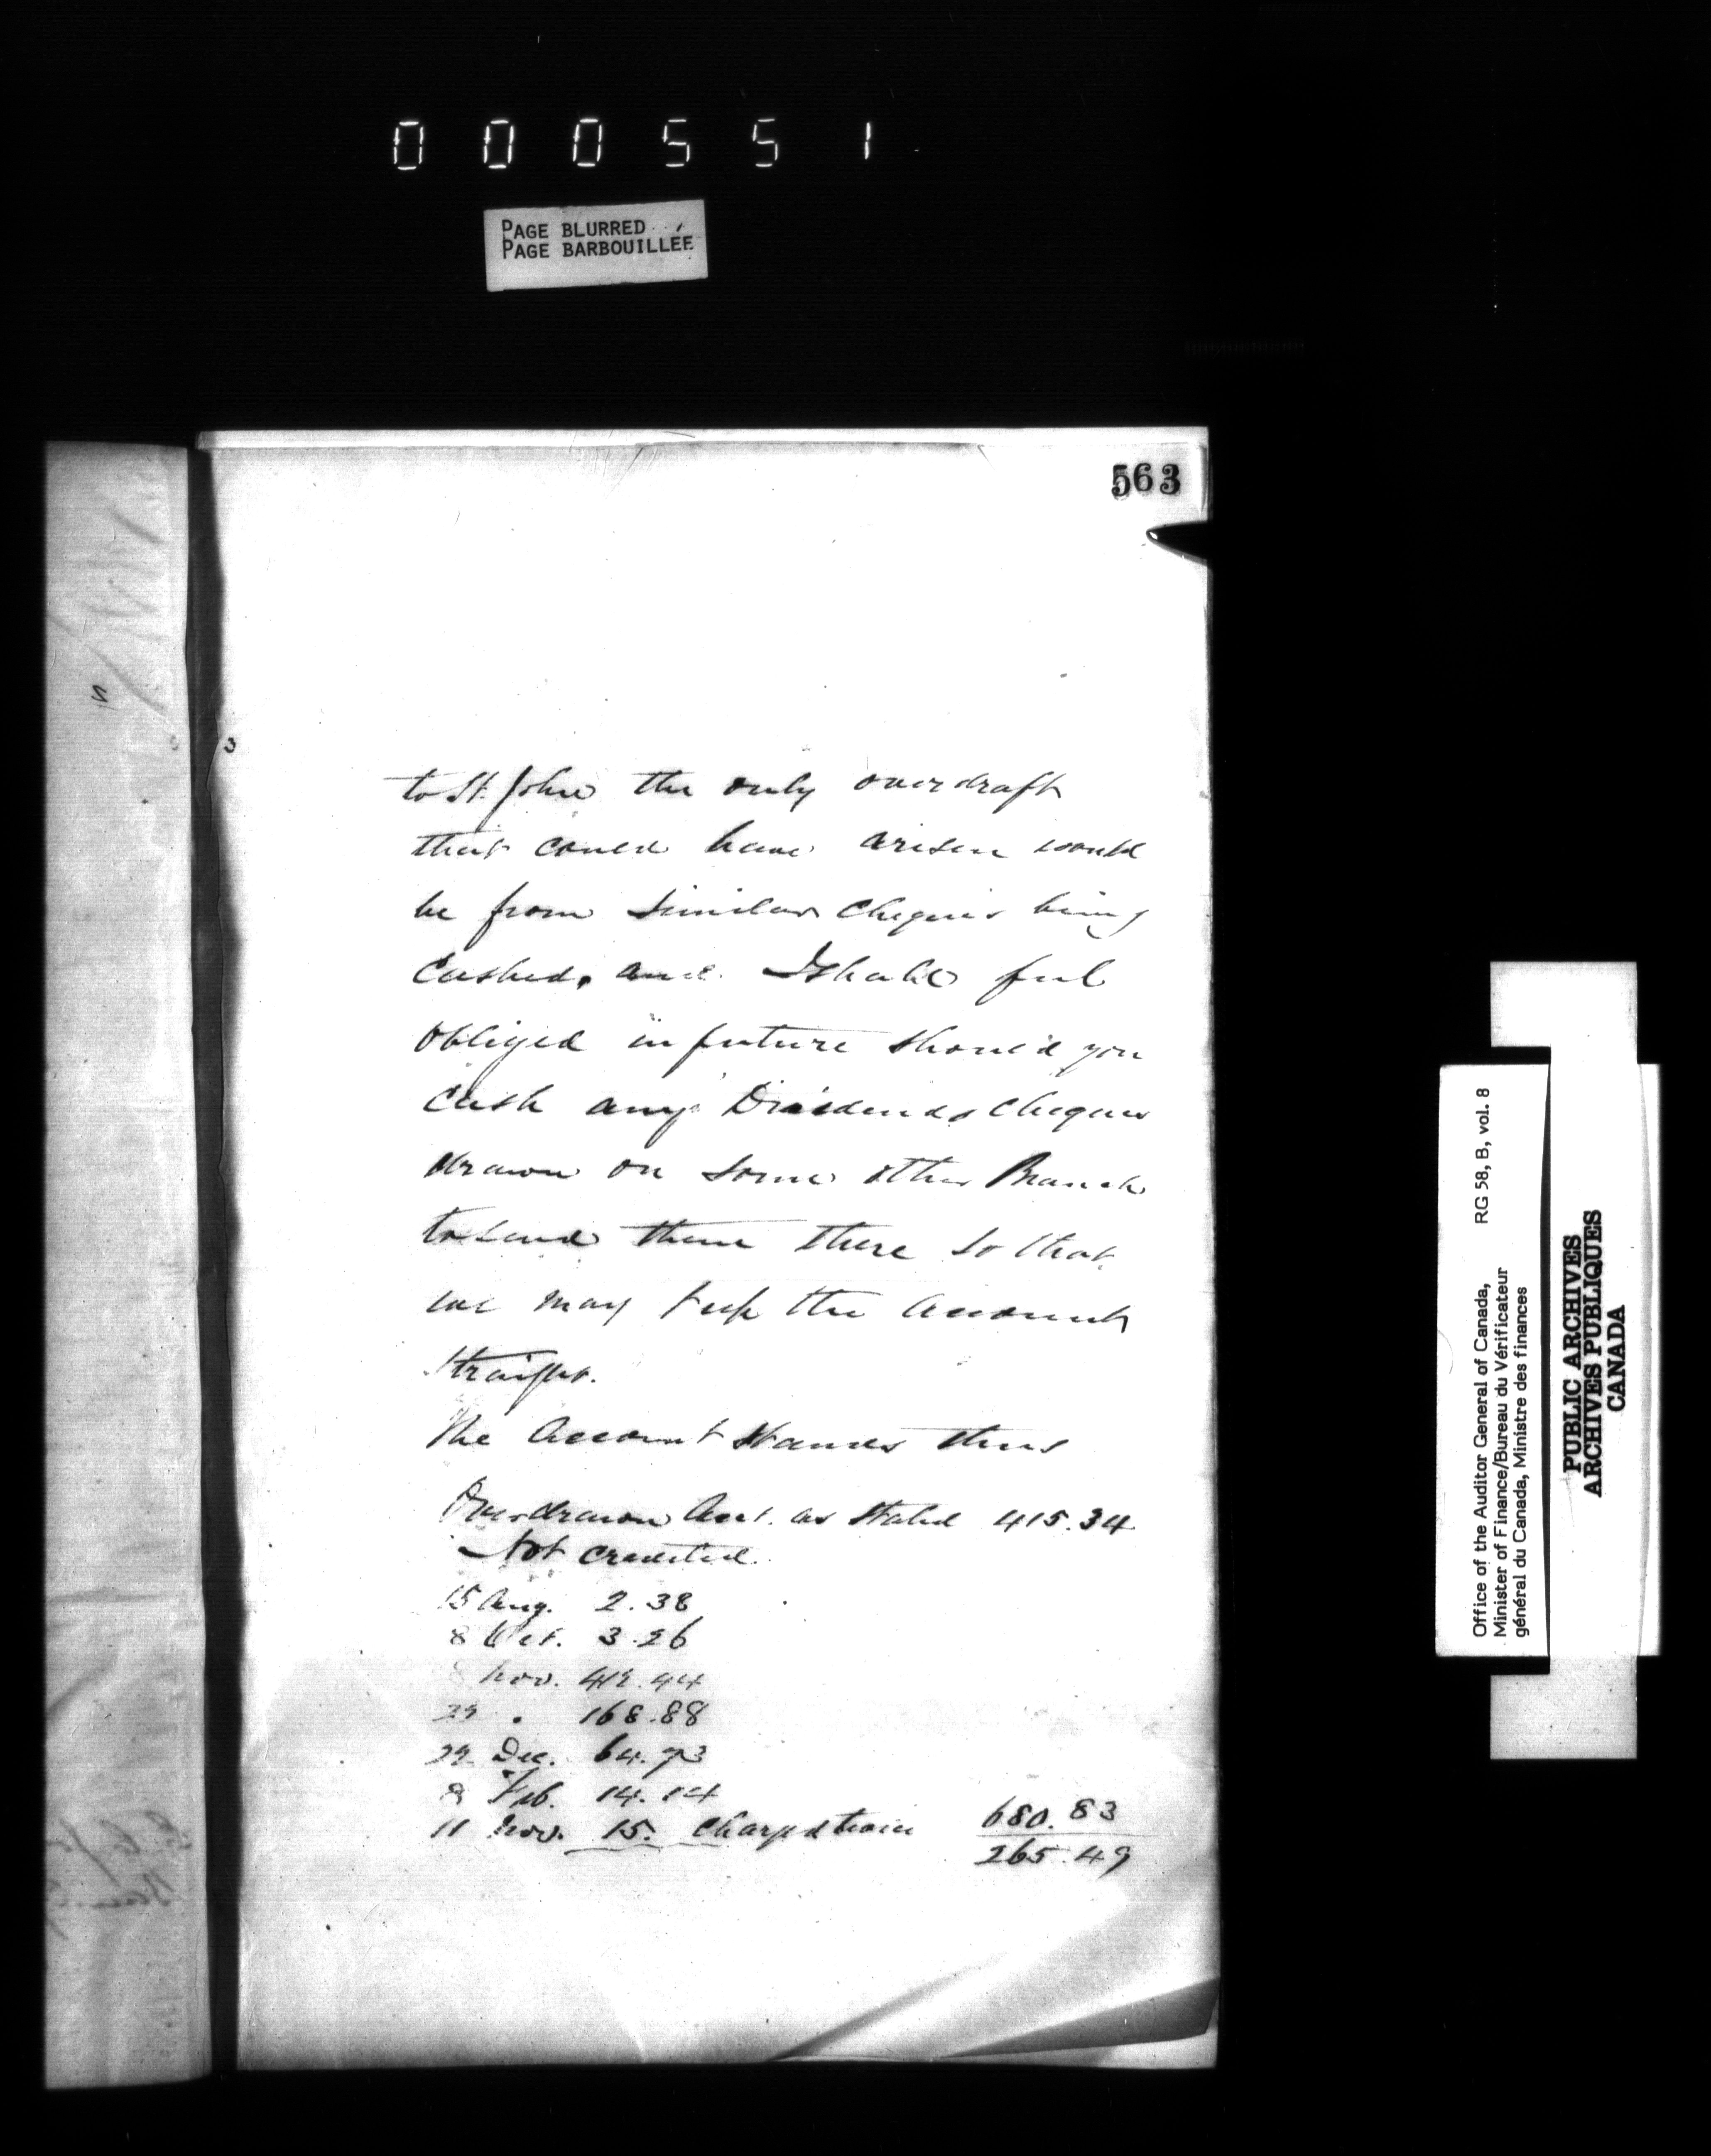 000551
PAGE BLURRED
PAGE BARBOUILLÉE
563
3
to St. John the only overdraft
that could have arisen would
be from similar Cheques being
Cashed, and I shall feel
obliged in future should you
Cash any Dividends Cheques
drawn on some other Branch
to send them there so that
we may keep the Accounts
straight.
The Account stands thus
Overdrawn Acct. as stated 415.34
Not credited
15 Aug. 2.38
8 Oct. 3.26
8 Nov. 412.44
29 " 168.88
29 Dec. 64.73
8 Feb. 14.14
11 Nov. 15. Charged twice 680.83
265.49
Office of the Auditor General of Canada, RG 58, B, vol. 8
Minister of Finance/Bureau du Vérificateur
général du Canada, Ministre des finances
PUBLIC ARCHIVES
ARCHIVES PUBLIQUES
CANADA